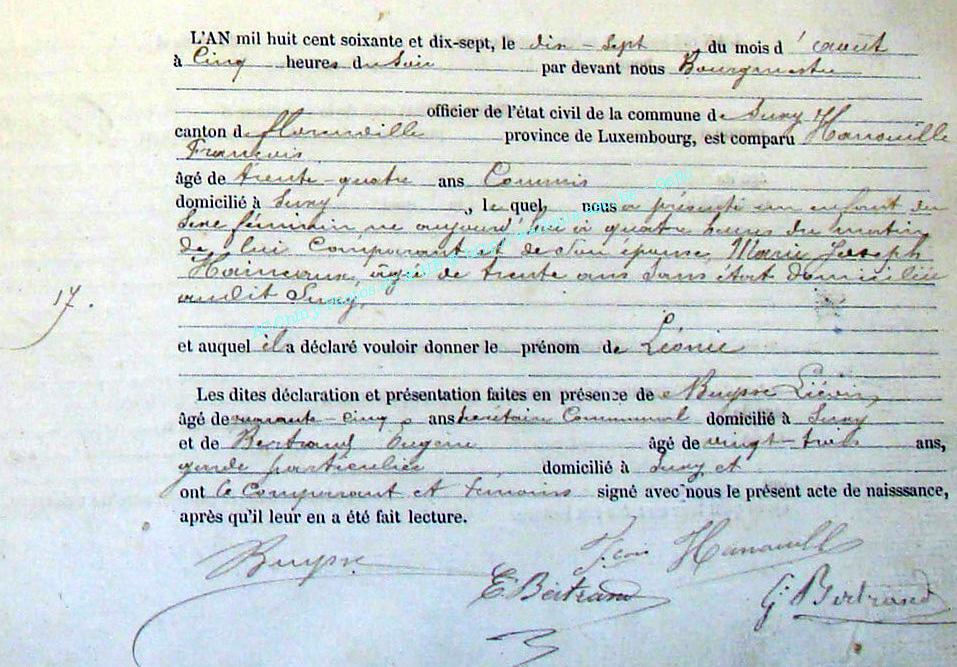 L'AN mil huit cent soixante et dix-sept, le dix-sept du mois d'aout
à Cinq heures du Soir par devant nous Bourgmestre
officier de l'état civil de la commune de Suxy
canton de province de Luxembourg, est comparu Hanouille
François
âgé de trente-quatre ans Commis
domicilié à Suxy, le quel nous a présenté un enfant du
Sexe féminin né aujourd'hui à quatre heures du matin
de lui Comparant et de Son épouse, Marie Joseph
agée de trente ans Sans état domiciliée
audit Suxy,
17.
et auquel il a déclaré vouloir donner le prénom de Léonie
Les dites déclaration et présentation faites en présence de Buysse
âgé de cinq ans Communal domicilié à Suxy
et de Bertrand Eugène âgé de vingt-trois ans,
garde particulier domicilié à Suxy et
ont le Comparant et témoins signé avec nous le présent acte de naisssance,
après qu'il leur en a été fait lecture.
Buysse
Hanouille
E Bertrand
G. Bertrand